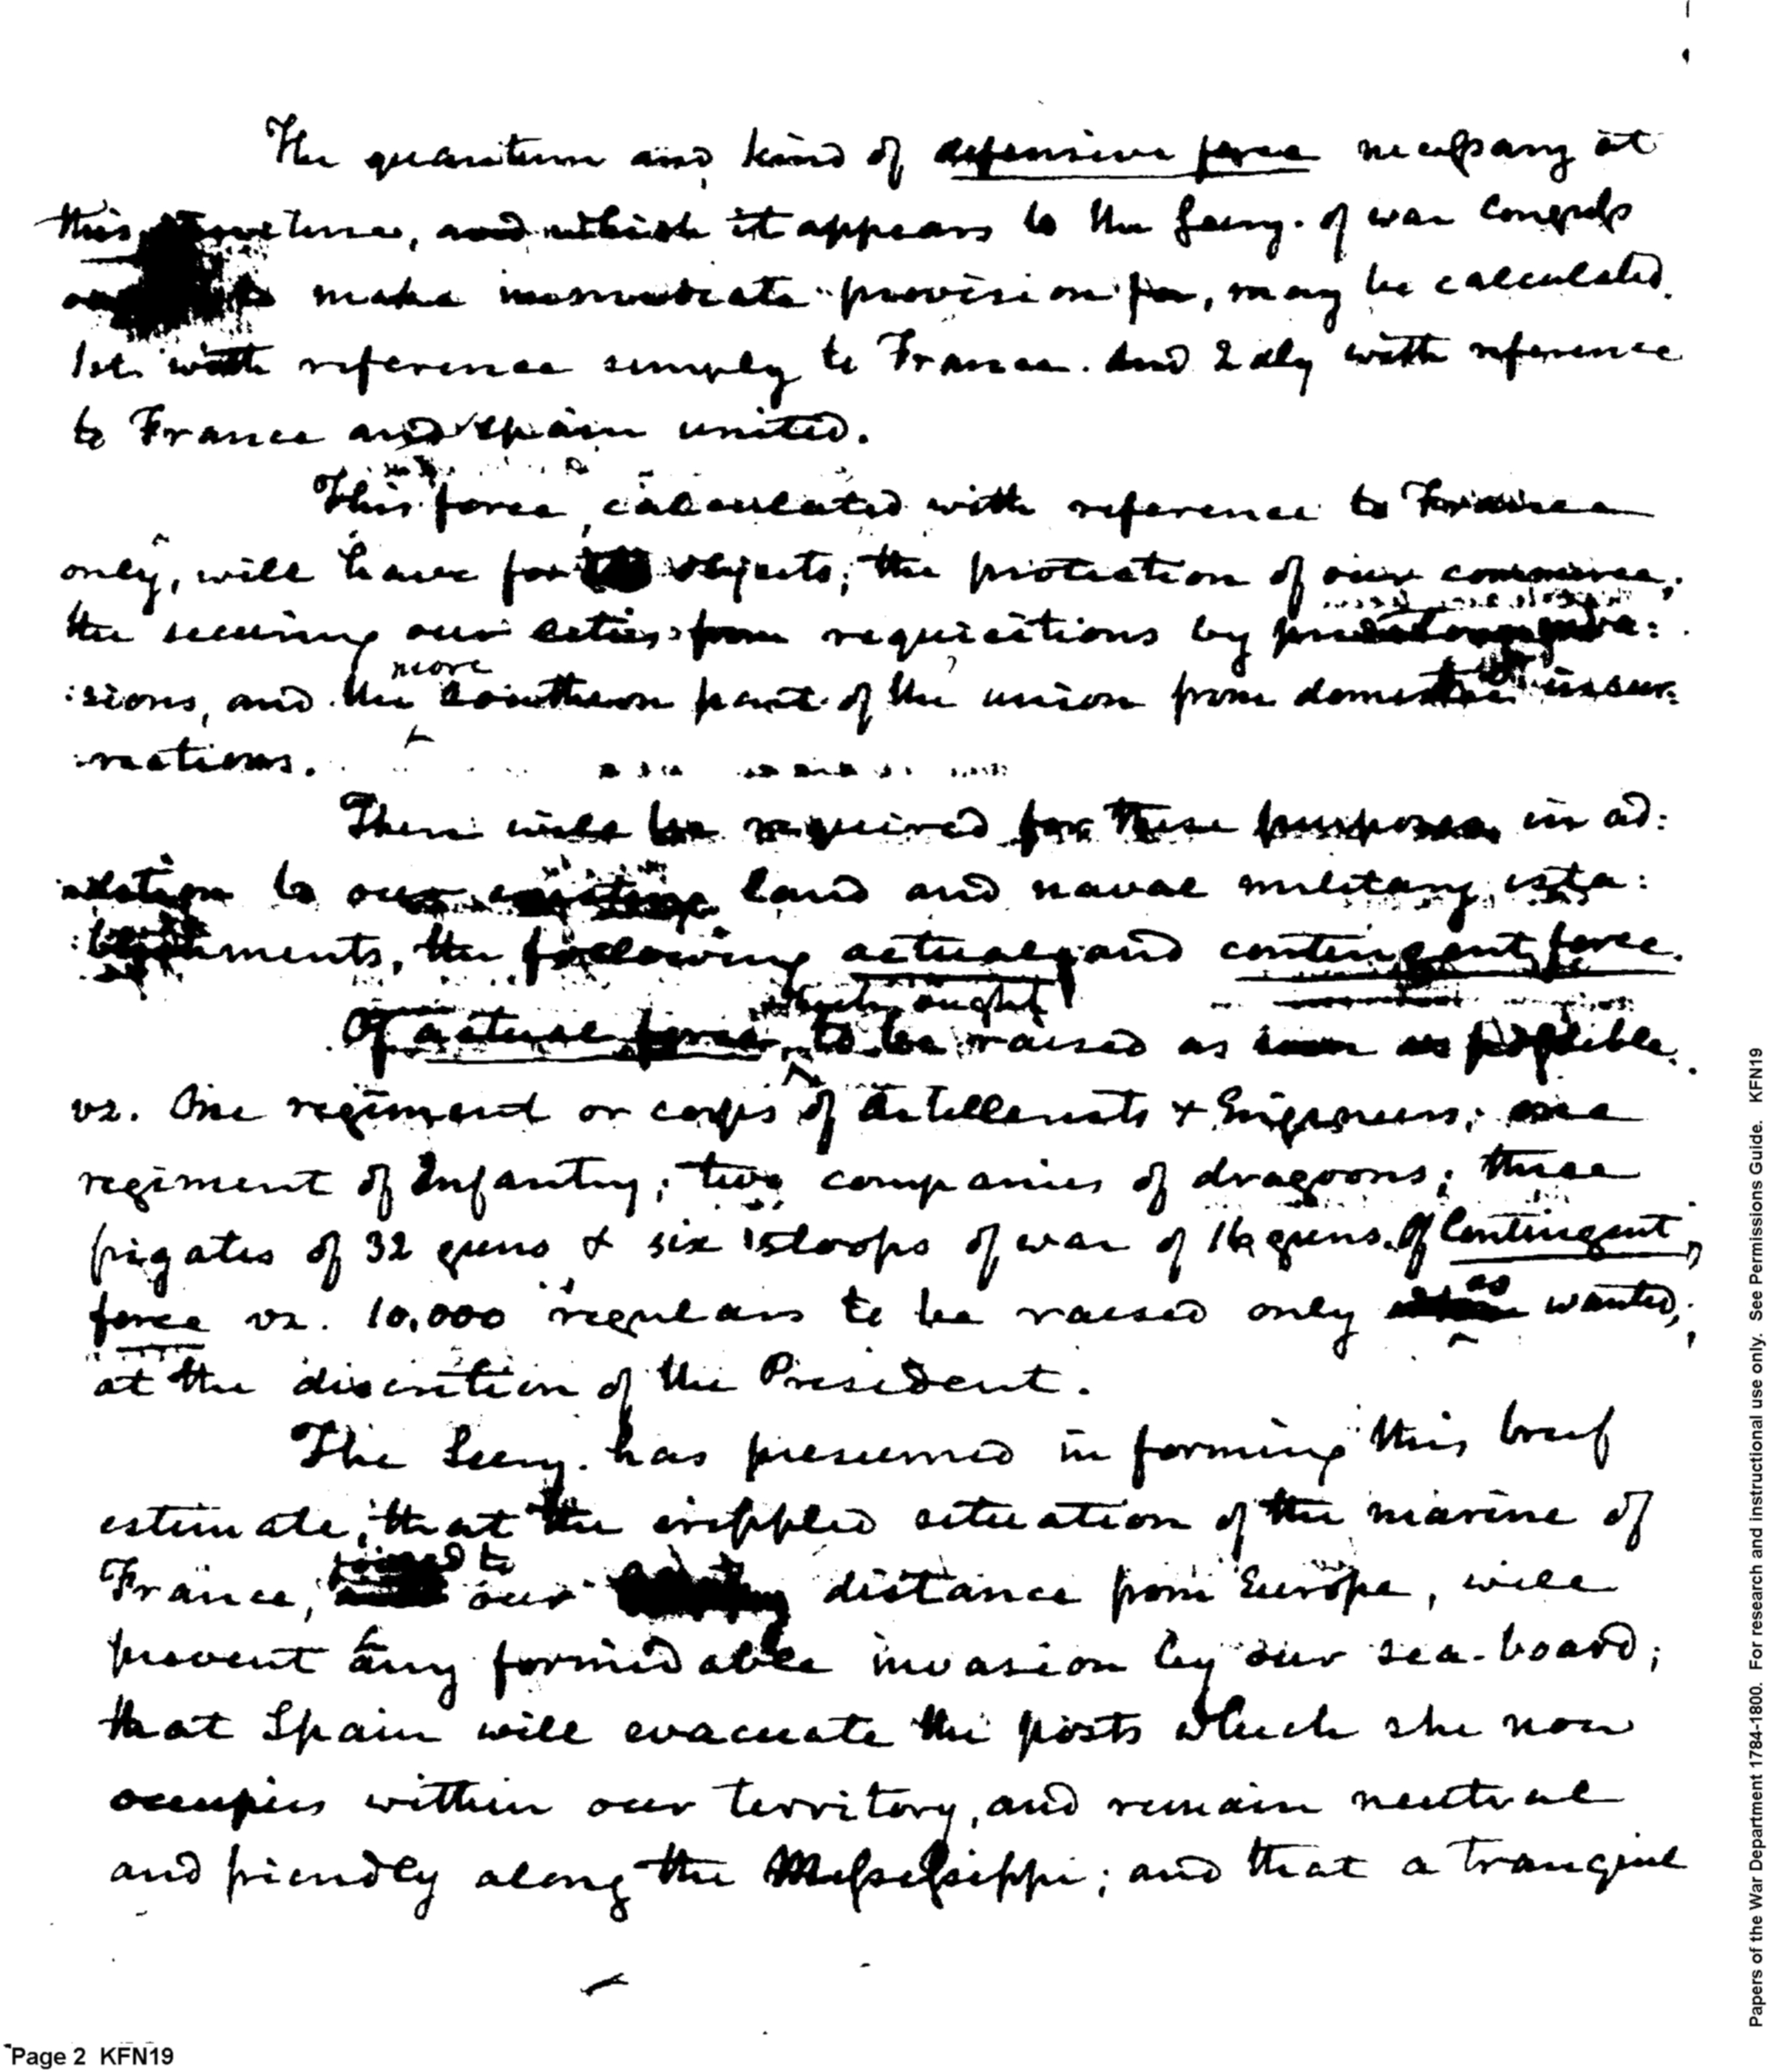 The quantum and kind of defensive force necessary at
this juncture, and which it appears to the Secry. of war Congress
make immediate provision for, may be calculated.
1st. with reference simply to France. And 2dly with reference
to France and Spain united.
This force, calculated with reference to France
only, will have for objects; the protection of our commerce;
the securing our cities from requisitions by
:sions, and the more southern part of the union from domestic insur:
:rections.
There will be required for these purposes in ad:
:dition to our existing land and naval military esta:
:blishments, the following actual and contingent force.
Of actual force, which ought to be raised as soon as possible.
vz. One regiment or corps of Artillerists & Engineers; one
regiment of Infantry; two companies of dragoons; three
frigates of 32 guns & six sloops of war of 16 guns. Of Contingent
force vz. 10,000 regulars to be raised only as wanted,
at the discretion of the President.
The Secry. has presumed in forming this brief
estimate, that the crippled situation of the marine of
France, joined to our distance from Europe, will
prevent any formidable invasion by our sea-board;
that Spain will evacuate the posts which she now
occupies within our territory, and remain neutral
and friendly along the Mississippi; and that a tranquil
Page 2 KFN19
Papers of the War Department 1784-1800. For research and instructional use only. See Permissions Guide. KFN19